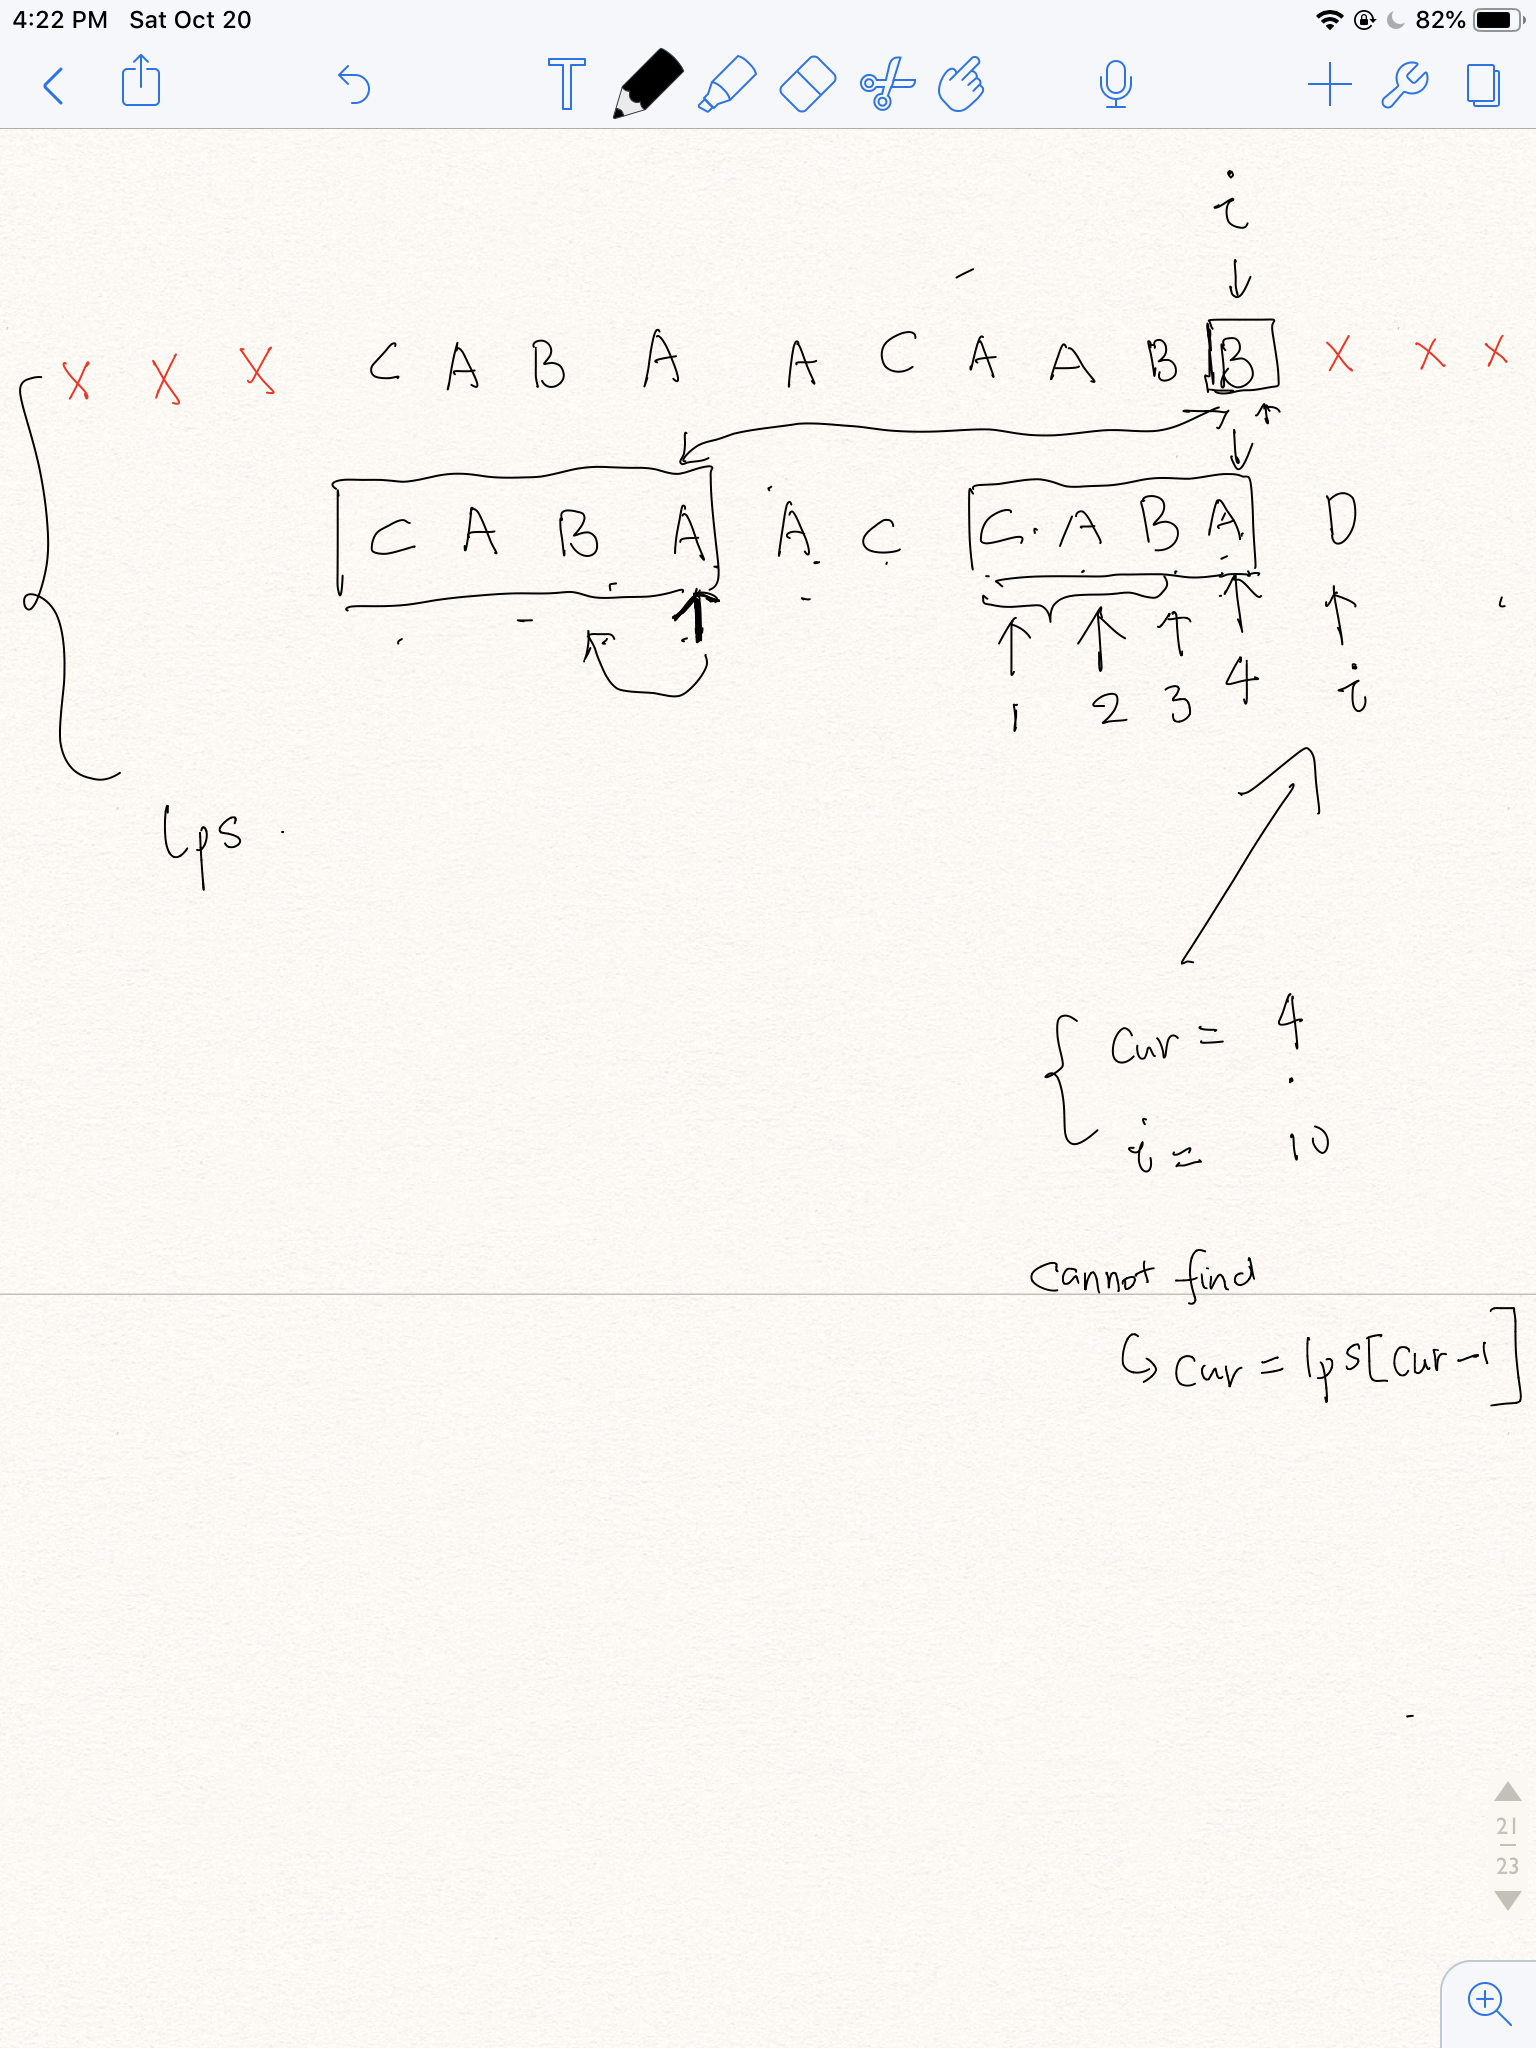 4:22 PM Sat Oct 20 82%
T
i
X X X C A B A A C A A B B X X X
C A B A A C C A B A D
1 2 3 4 i
lps
cur = 4
i = 10
cannot find
cur = lps[cur-1]
21
23